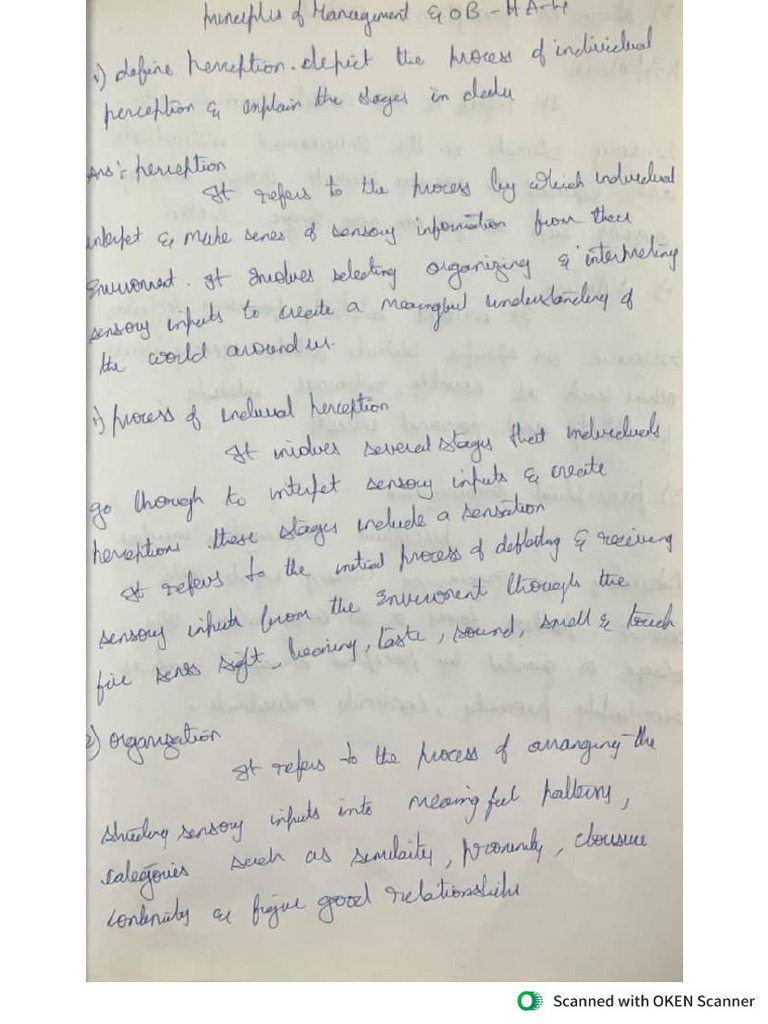 Principles of Management & OB - HA-4
1) define perception. depict the process of individual
perception & explain the stages in
Ans: perception
It refers to the process by which individual
& make of sensory information from
. It selecting organizing & interpreting
sensory inputs to create a understanding of
the world around us.
1) process of perception
It several stages that individuals
go through to sensory inputs & create
perceptions these stages include a sensation
It refers to the process of & receiving
sensory inputs from the through the
sight, hearing, taste, sound, smell & touch
2) organization
It refers to the process of arranging the
sensory inputs into patterns,
categories such as , ,
& good relationship
Scanned with OKEN Scanner